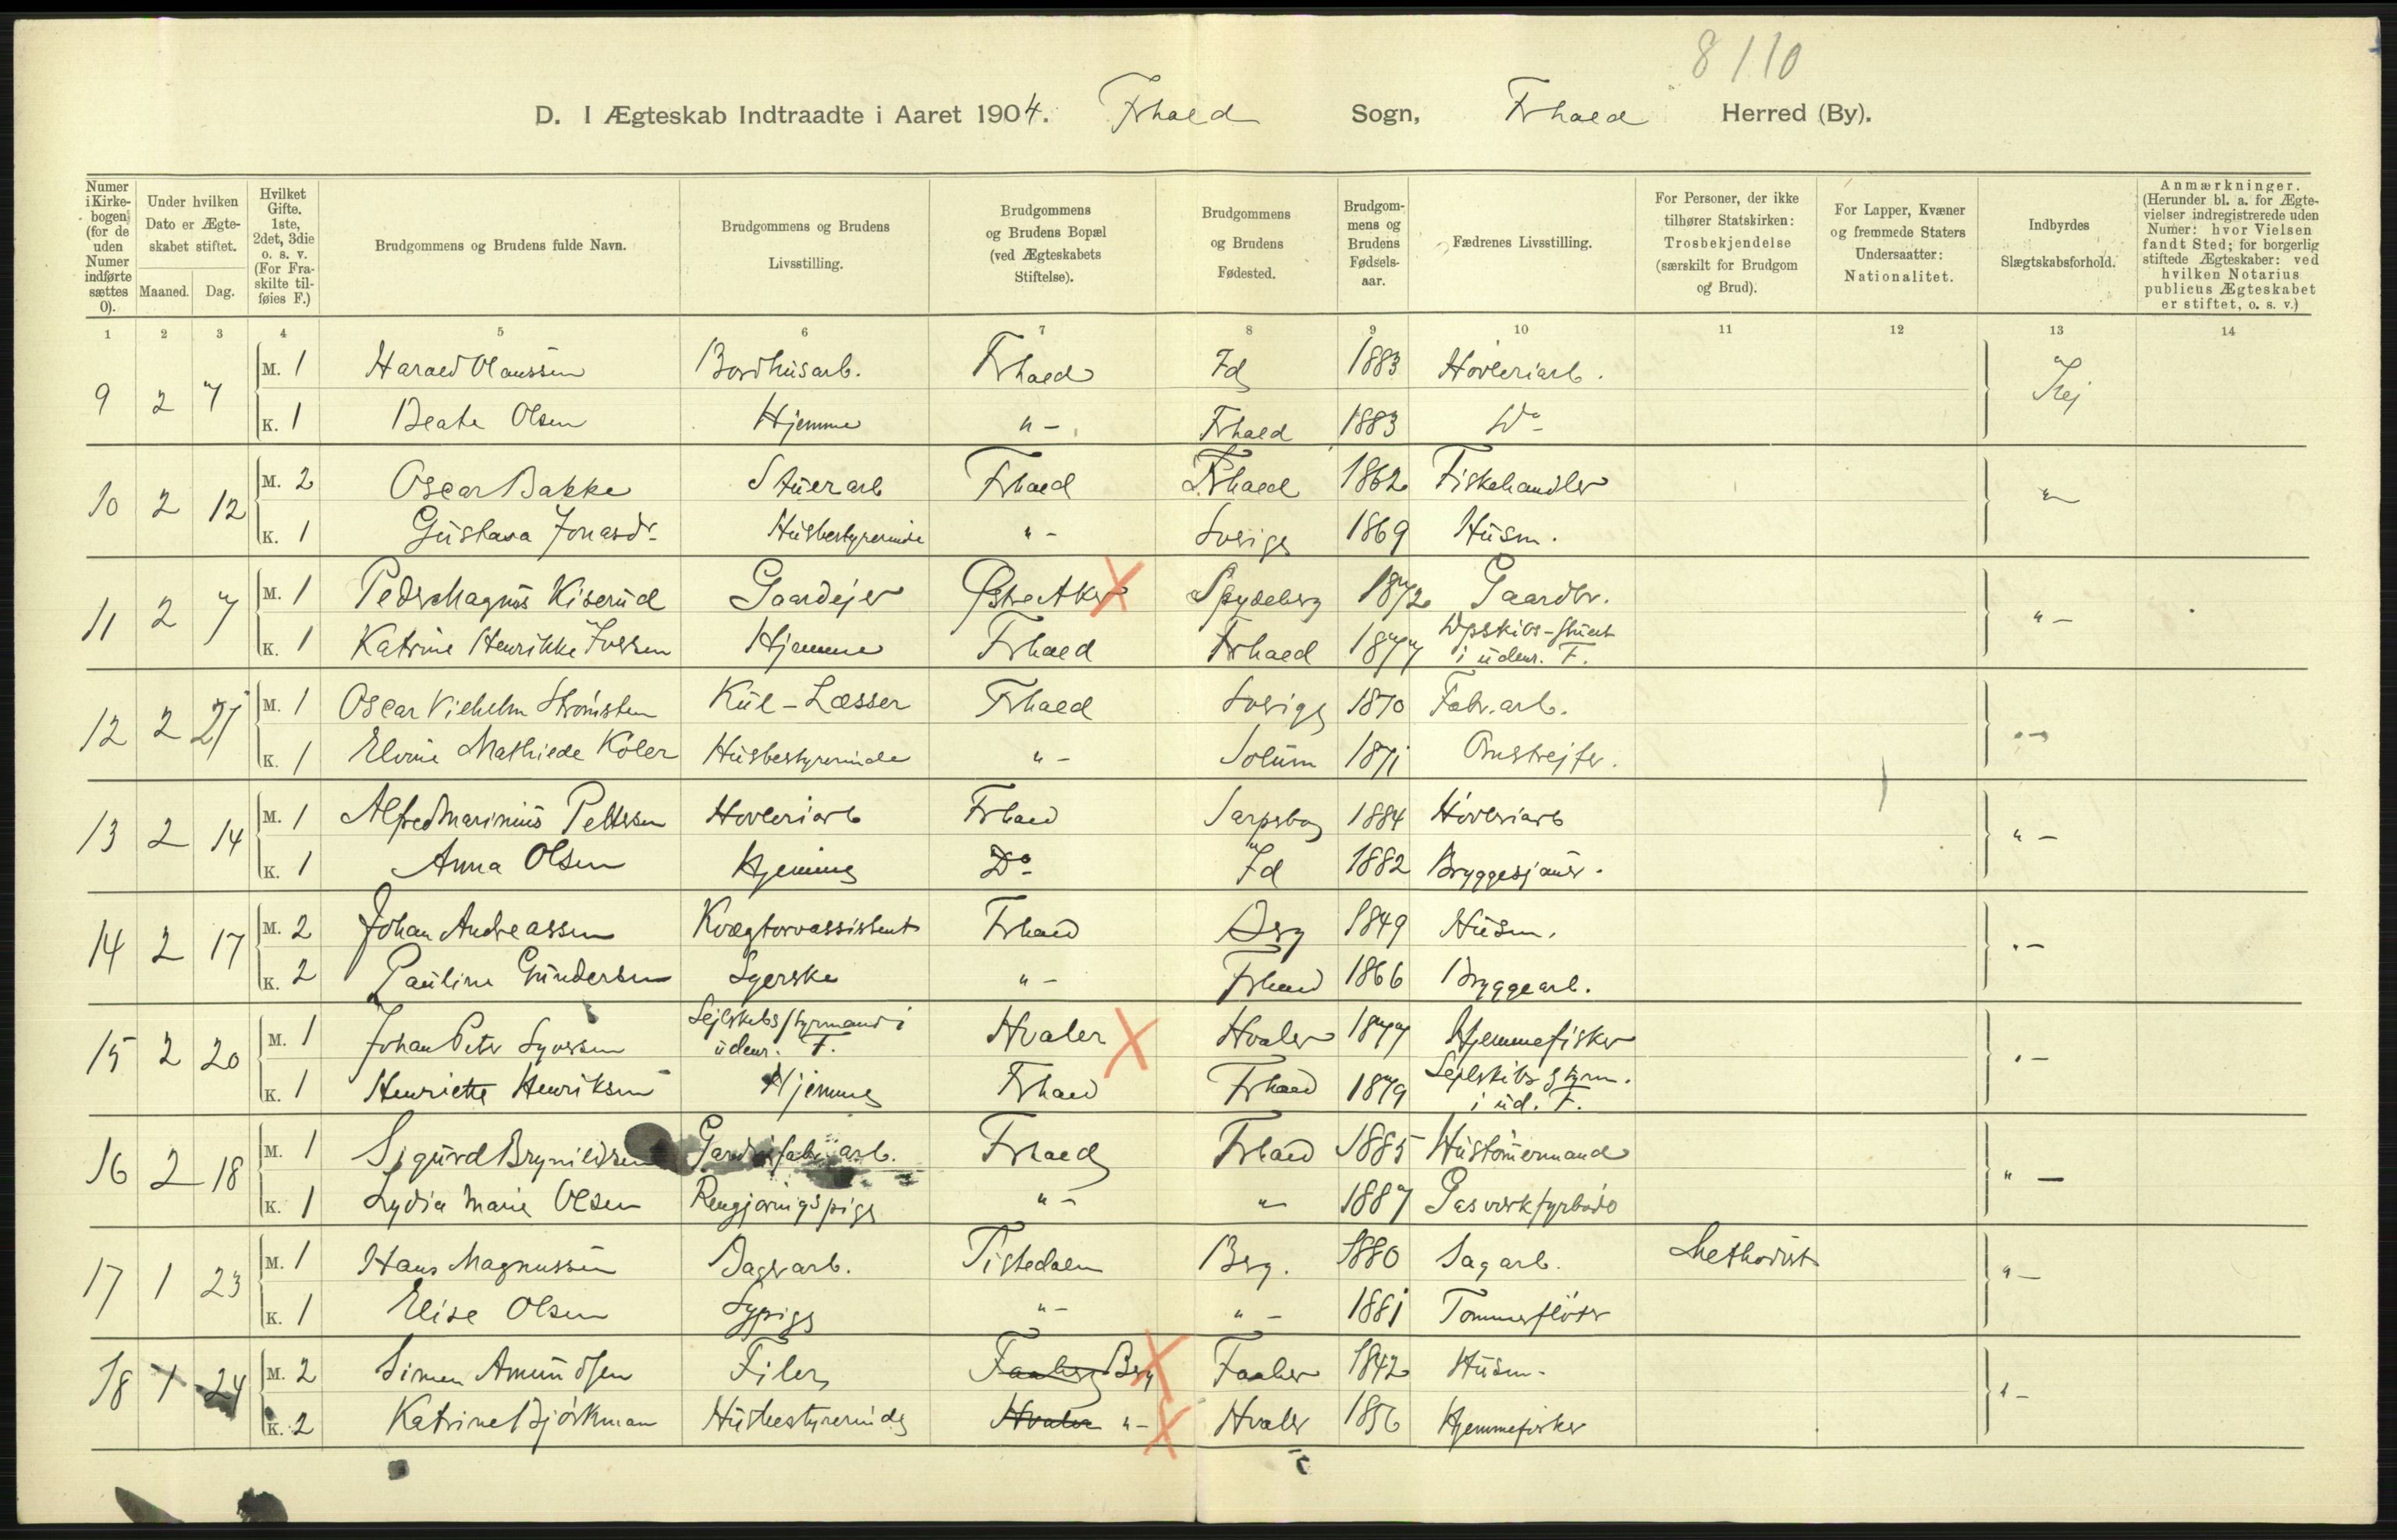 8110
D. I Ægteskab Indtraadte i Aaret 1904. Frhald Sogn, Frhald Herred (By).
Numer i Kirkebogen (for de uden Numer indførte sættes 0).
Under hvilken Dato er Ægteskabet stiftet.
Maaned. Dag.
Hvilket Gifte. 1ste, 2det, 3die o. s. v. (For Fraskilte tilføies F.)
Brudgommens og Brudens fulde Navn.
Brudgommens og Brudens Livsstilling.
Brudgommens og Brudens Bopæl (ved Ægteskabets Stiftelse).
Brudgommens og Brudens Fødested.
Brudgommens og Brudens Fødselsaar.
Fædrenes Livsstilling.
For Personer, der ikke tilhører Statskirken: Trosbekjendelse (særskilt for Brudgom og Brud).
For Lapper, Kvæner og fremmede Staters Undersaatter: Nationalitet.
Indbyrdes Slægtskabsforhold.
Anmærkninger. (Herunder bl. a. for Ægtevielser indregistrerede uden Numer: hvor Vielsen fandt Sted; for borgerlig stiftede Ægteskaber: ved hvilken Notarius publicus Ægteskabet er stiftet, o. s. v.)
1 2 3 4 5 6 7 8 9 10 11 12 13 14
9 2 7 M. 1 Harald Olaussen Bordhusarb. Frhald Id 1883 Høvleriarb. Nej
K. 1 Beate Olsen Hjemme " - Frhald 1883 Do -
10 2 12 M. 2 Oscar Bakke Stuerarb Frhald Frhald 1862 Fiskehandler " -
K. 1 Gustava Jonasdr Husbestyrerinde " - Sverige 1869 Husm.
11 2 7 M. 1 Peder Magnus Kiserud Gaardejer Østre Aker Spydeberg 1872 Gaardbr. " -
K. 1 Katrine Henrikke Iversen Hjemme Frhald Frhald 1877 i udenr. F.
12 2 21 M. 1 Oscar Vilhelm Strømsten Kul-Læsser Frhald Sverige 1870 Fabr.arb. " -
K. 1 Elvine Mathilde Koler Husbestyrerinde " - Solum 1871 Omstrejfer.
13 2 14 M. 1 Alfred Marinius Pettersen Høvleriarb Frhald Sarpsborg 1884 Høvleriarb " -
K. 1 Anna Olsen Hjemme Do - Id 1882 Bryggesjauer.
14 2 17 M. 2 Johan Andreassen Kvægtorvassistent Frhald Berg 1849 Husm. " -
K. 2 Pauline Gundersen Syerske " - Frhald 1866 Bryggearb.
15 2 20 M. 1 Johan Peter Syversen Sejlskibsstyrmand i udenr. F. Hvaler Hvaler 1877 Hjemmefisker " -
K. 1 Henriette Henriksen Hjemme Frhald Frhald 1879 Sejlskibsstyrm. i ud. F.
16 2 18 M. 1 Sigurd Brynildsen Frhald Frhald 1885 Hustømermand " -
K. 1 Lydia Marie Olsen Rengjøringspige " - " 1887 Gasverkfyrbøder
17 1 23 M. 1 Hans Magnussen Bagerarb. Tistedalen Berg. 1880 Sagarb. Methodist " -
K. 1 Elise Olsen Sypige " - " - 1881 Tømmerfløter
18 1 24 M. 2 Simen Amundsen Filer Faaberg Berg Faaber 1842 Husm. " -
K. 2 Katrine Bjørkman Husbestyrerinde Hvaler " - Hvaler 1856 Hjemmefisker